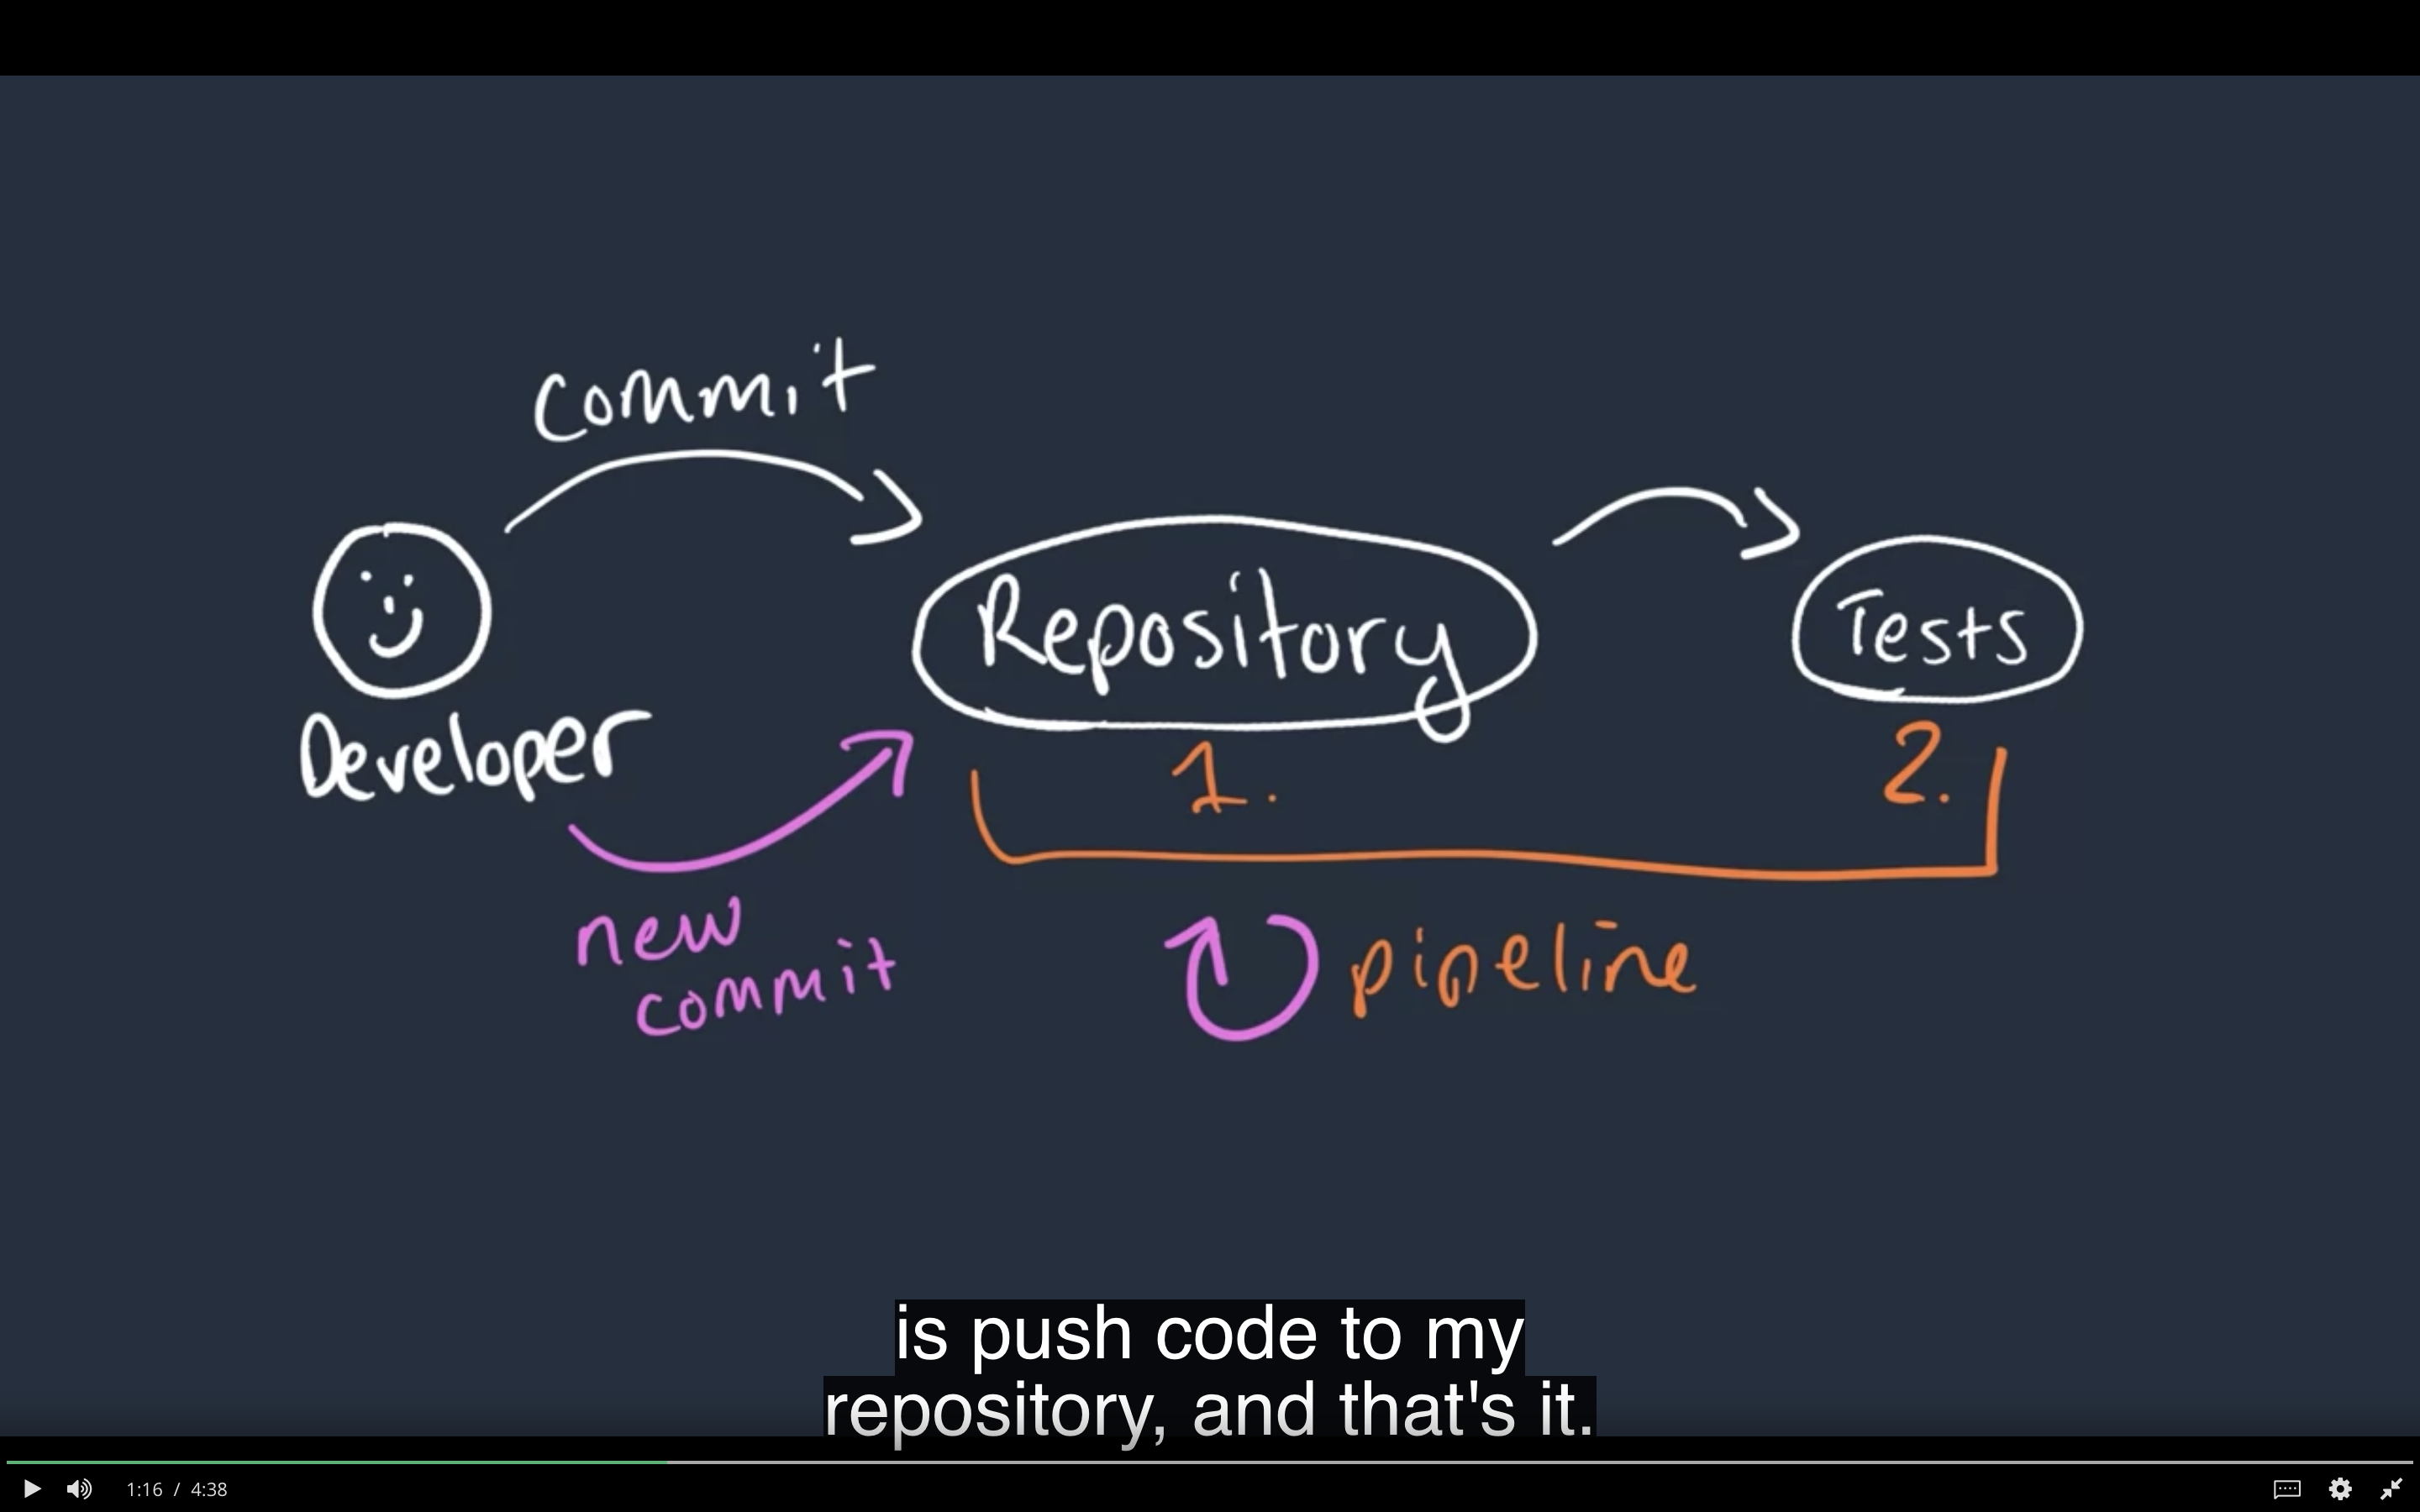 commit
Developer
Repository
Tests
1.
2.
new
commit
pipeline
is push code to my
repository, and that's it.
1:16 / 4:38